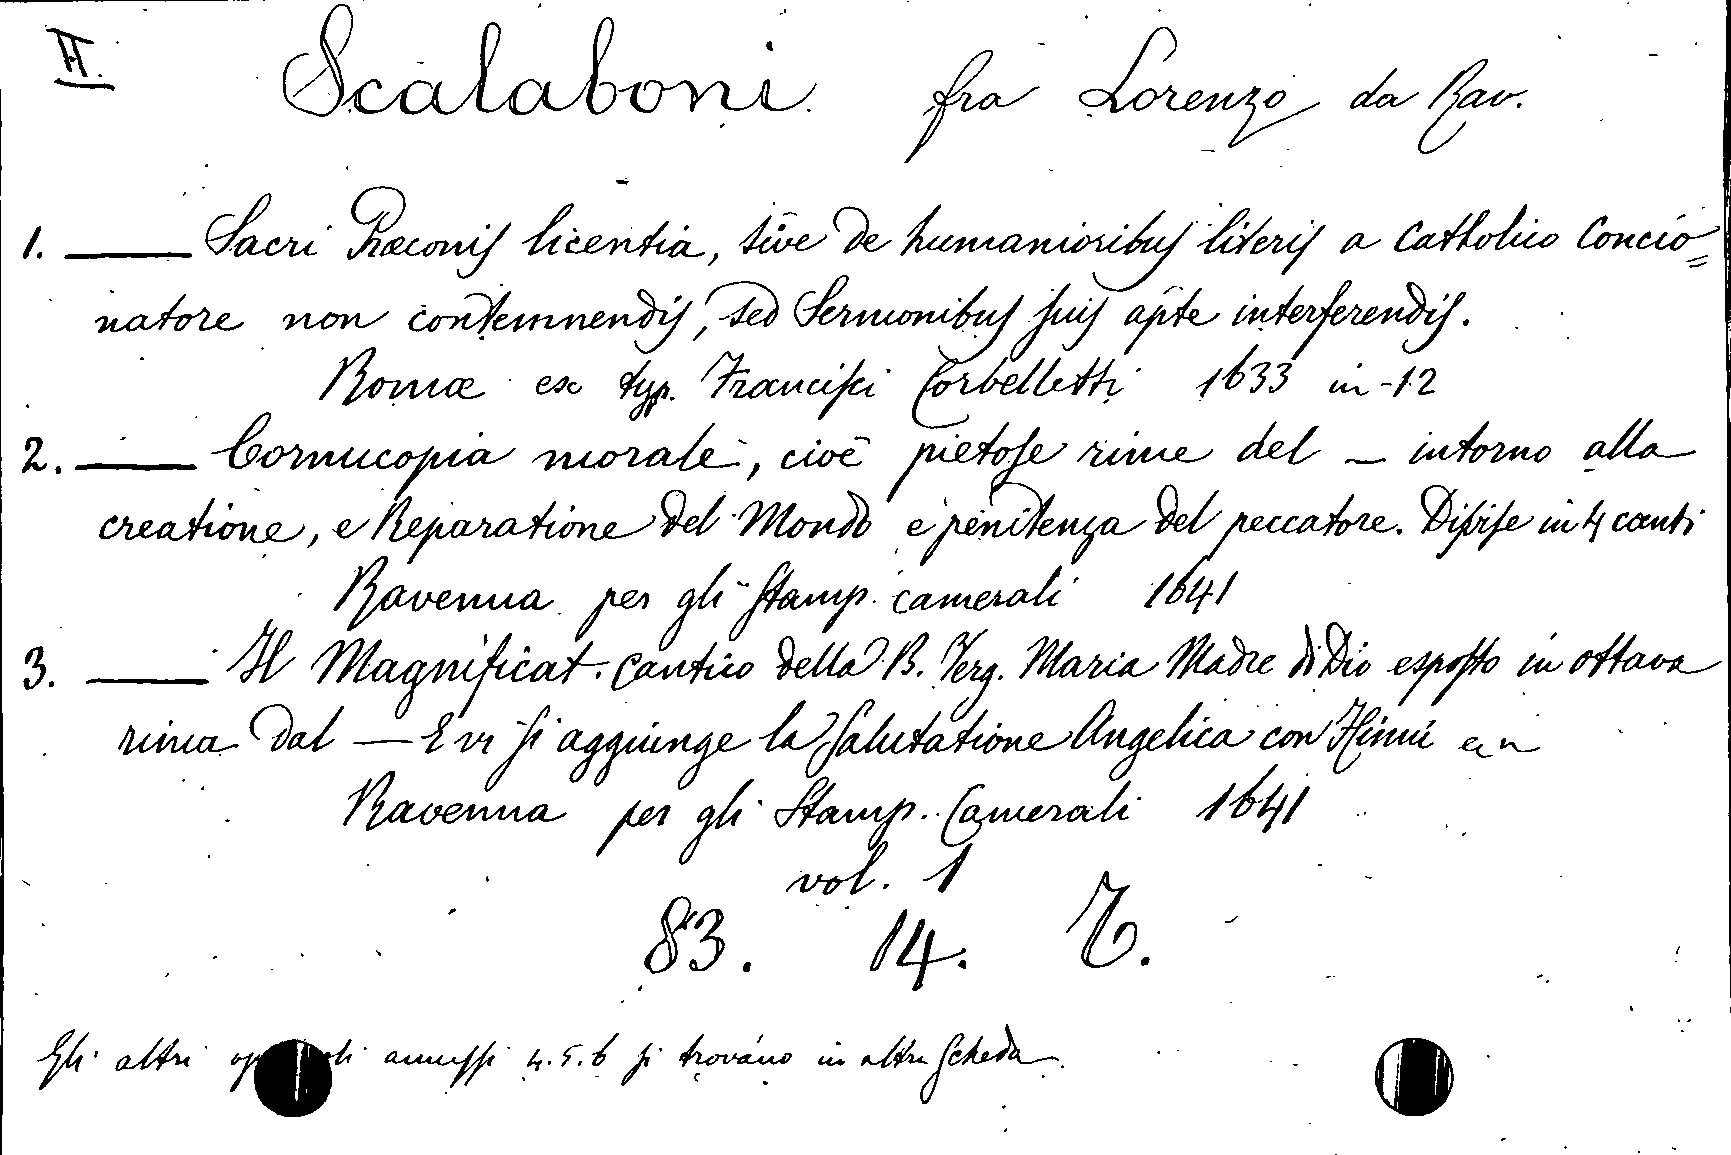 II. Scalaboni fra Lorenzo da Rav.
1. ___ Sacri Præconis licentia, sive de humanioribus literis a Catholico Concio=
natore non contemnendis, sed Sermonibus suis apte interserendis.
Romæ ex typ. Francisci Corbelletti 1633 in-12
2. ___ Cornucopia morale, cioè pietose rime del _ intorno alla
creatione, e Reparatione del Mondo e penitenza del peccatore. Divise in 4 canti
Ravenna per gli Stamp. camerali 1641
3. ___ Il Magnificat. Cantico della B. Verg. Maria Madre di Dio esposto in ottava
rima dal — E vi si aggiunge la Salutatione Angelica con
Ravenna per gli Stamp. Camerali 1641
vol. 1
83. 14. T.
Gli altri annessi 4.5.6 si trovano in altra scheda